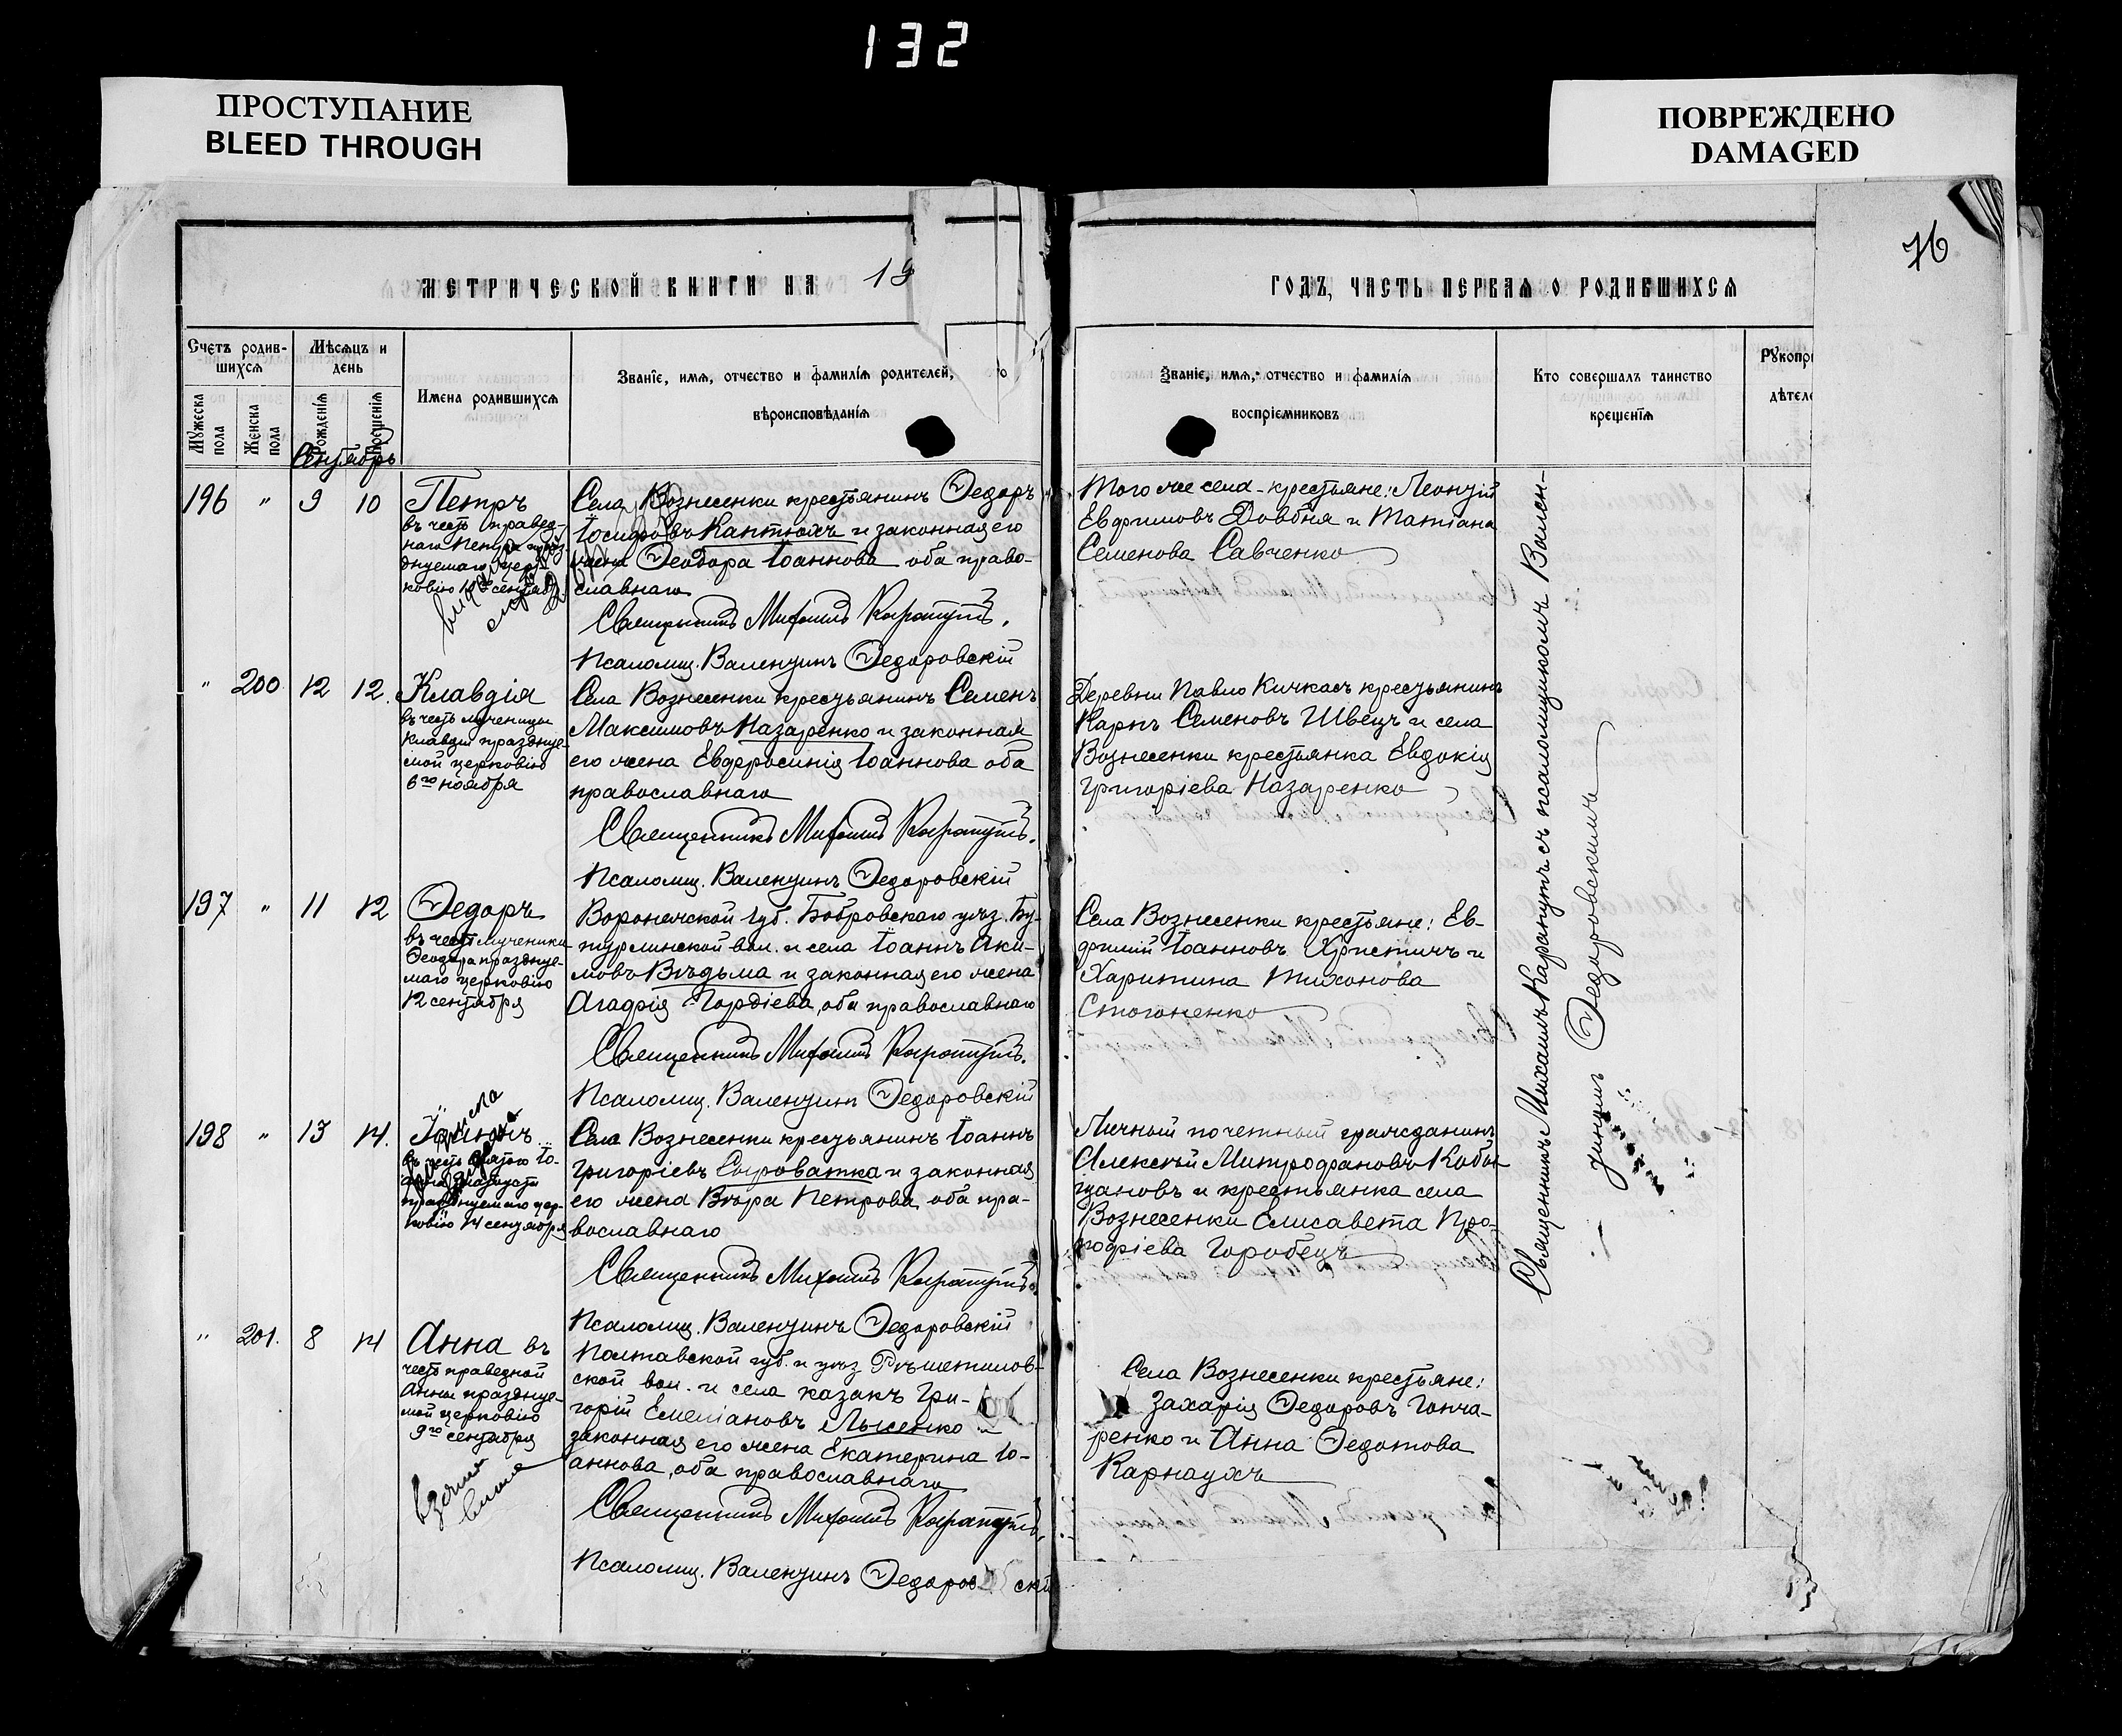 132
ПРОСТУПАНИЕ
BLEED THROUGH
ПОВРЕЖДЕНО
DAMAGED
76
МЕТРИЧЕСКОЙ КНИГИ НА 19
ГОДЪ, ЧАСТЬ ПЕРВАЯ О РОДИВШИХСЯ
Счетъ родив-
шихся
Мѣсяцъ и
день
Мужеска пола
Женска пола
Рожденія
Крещенія
Имена родившихся
Званіе, имя, отчество и фамилія родителей,
вѣроисповѣданія
Званіе, имя, отчество и фамилія
воспріемниковъ
Кто совершалъ таинство
крещенія
Рукопри
дѣтеле
Сентябрь
196 " 9 10
Петръ
въ честь правед-
наго Петра празд-
днуемаго цер-
ковію
Села Вознесенки крестьянинъ Ѳедоръ
Іосифовъ Кантюхъ и законная его
жена Ѳеодора Іоаннова оба право-
славнаго
Священникъ Михаилъ Карапутъ.
Псаломщ. Валентинъ Ѳедоровскій
Того же села - крестьяне: Леонтій
Евфимовъ Довбня и Татіана
Семенова Савченко
" 200 12 12.
Клавдія
въ честь мученицы
Клавдіи празднуе-
мой церковію
6го ноября
Села Вознесенки крестьянинъ Семенъ
Максимовъ Назаренко и законная
его жена Евфросинія Іоаннова оба
православнаго
Священникъ Михаилъ Карапутъ.
Псаломщ. Валентинъ Ѳедоровскій
Деревни Павло Кичкасъ крестьянинъ
Карпъ Семеновъ Швецъ и села
Вознесенки крестьянка Евдокія
Григоріева Назаренко
197 " 11 12
Ѳедоръ
въ честь мученика
Ѳеодора празднуе-
маго церковію
12 сентября
Воронежской губ. Бобровскаго уѣз. Бу-
турлинской вол. и села Іоаннъ Аки-
мовъ Вѣдьма и законная его жена
Агафія Гордіева, оба православнаго
Священникъ Михаилъ Карапутъ.
Псаломщ. Валентинъ Ѳедоровскій
Села Вознесенки крестьяне: Ев-
фимій Іоанновъ Христичъ и
Харитина Тихонова
Стогоненко
198 " 13 14.
Іоаннъ
въ честь святого Іо-
анна
празднуемаго цер-
ковію 14 сентября
Села Вознесенки крестьянинъ Іоаннъ
Григоріевъ Сыроватка и законная
его жена Вѣра Петрова, оба пра-
вославнаго
Священникъ Михаилъ Карапутъ.
Псаломщ. Валентинъ Ѳедоровскій
Личный почетный гражданинъ
Алексѣй Митрофановъ
и крестьянка села
Вознесенки Елисавета Про-
кофіева Горобецъ
" 201. 8 14
Анна въ
честь праведной
Анны празднуе-
мой церковію
9го сентября
Полтавской губ. и уѣз Рѣшетилов-
ской вол. и села казакъ Гри-
горій Емеліановъ Лысенко и
законная его жена Екатерина Іо-
аннова, оба православнаго
Священникъ Михаилъ Карапутъ.
Псаломщ. Валентинъ Ѳедоровскій
Села Вознесенки крестьяне:
Захарія Ѳедоровъ Гонча-
ренко и Анна Ѳедотова
Карнаухъ
Священникъ Михаилъ Карапутъ съ псаломщикомъ Вален-
тиномъ Ѳедоровскимъ